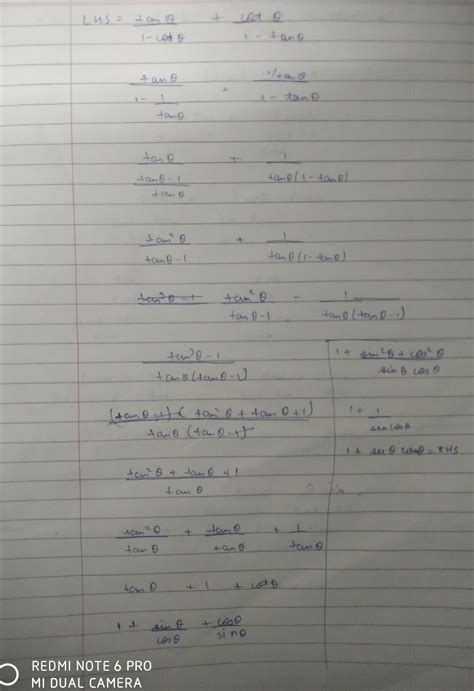 LHS = tanθ/(1-cotθ) + cotθ/(1-tanθ)
tanθ/(1 - 1/tanθ) + (1/tanθ)/(1-tanθ)
tanθ/((tanθ-1)/tanθ) + 1/(tanθ(1-tanθ))
tan²θ/(tanθ-1) + 1/(tanθ(1-tanθ))
tan²θ/(tanθ-1) - 1/(tanθ(tanθ-1))
(tan³θ-1)/(tanθ(tanθ-1))
(tanθ-1)(tan²θ + tanθ+1)/(tanθ(tanθ-1))
(tan²θ + tanθ +1)/tanθ
tan²θ/tanθ + tanθ/tanθ + 1/tanθ
tanθ + 1 + cotθ
1 + sinθ/cosθ + cosθ/sinθ
1+ (sin²θ + cos²θ)/(sinθ cosθ)
1+ 1/(sinθcosθ)
= RHS
REDMI NOTE 6 PRO
MI DUAL CAMERA